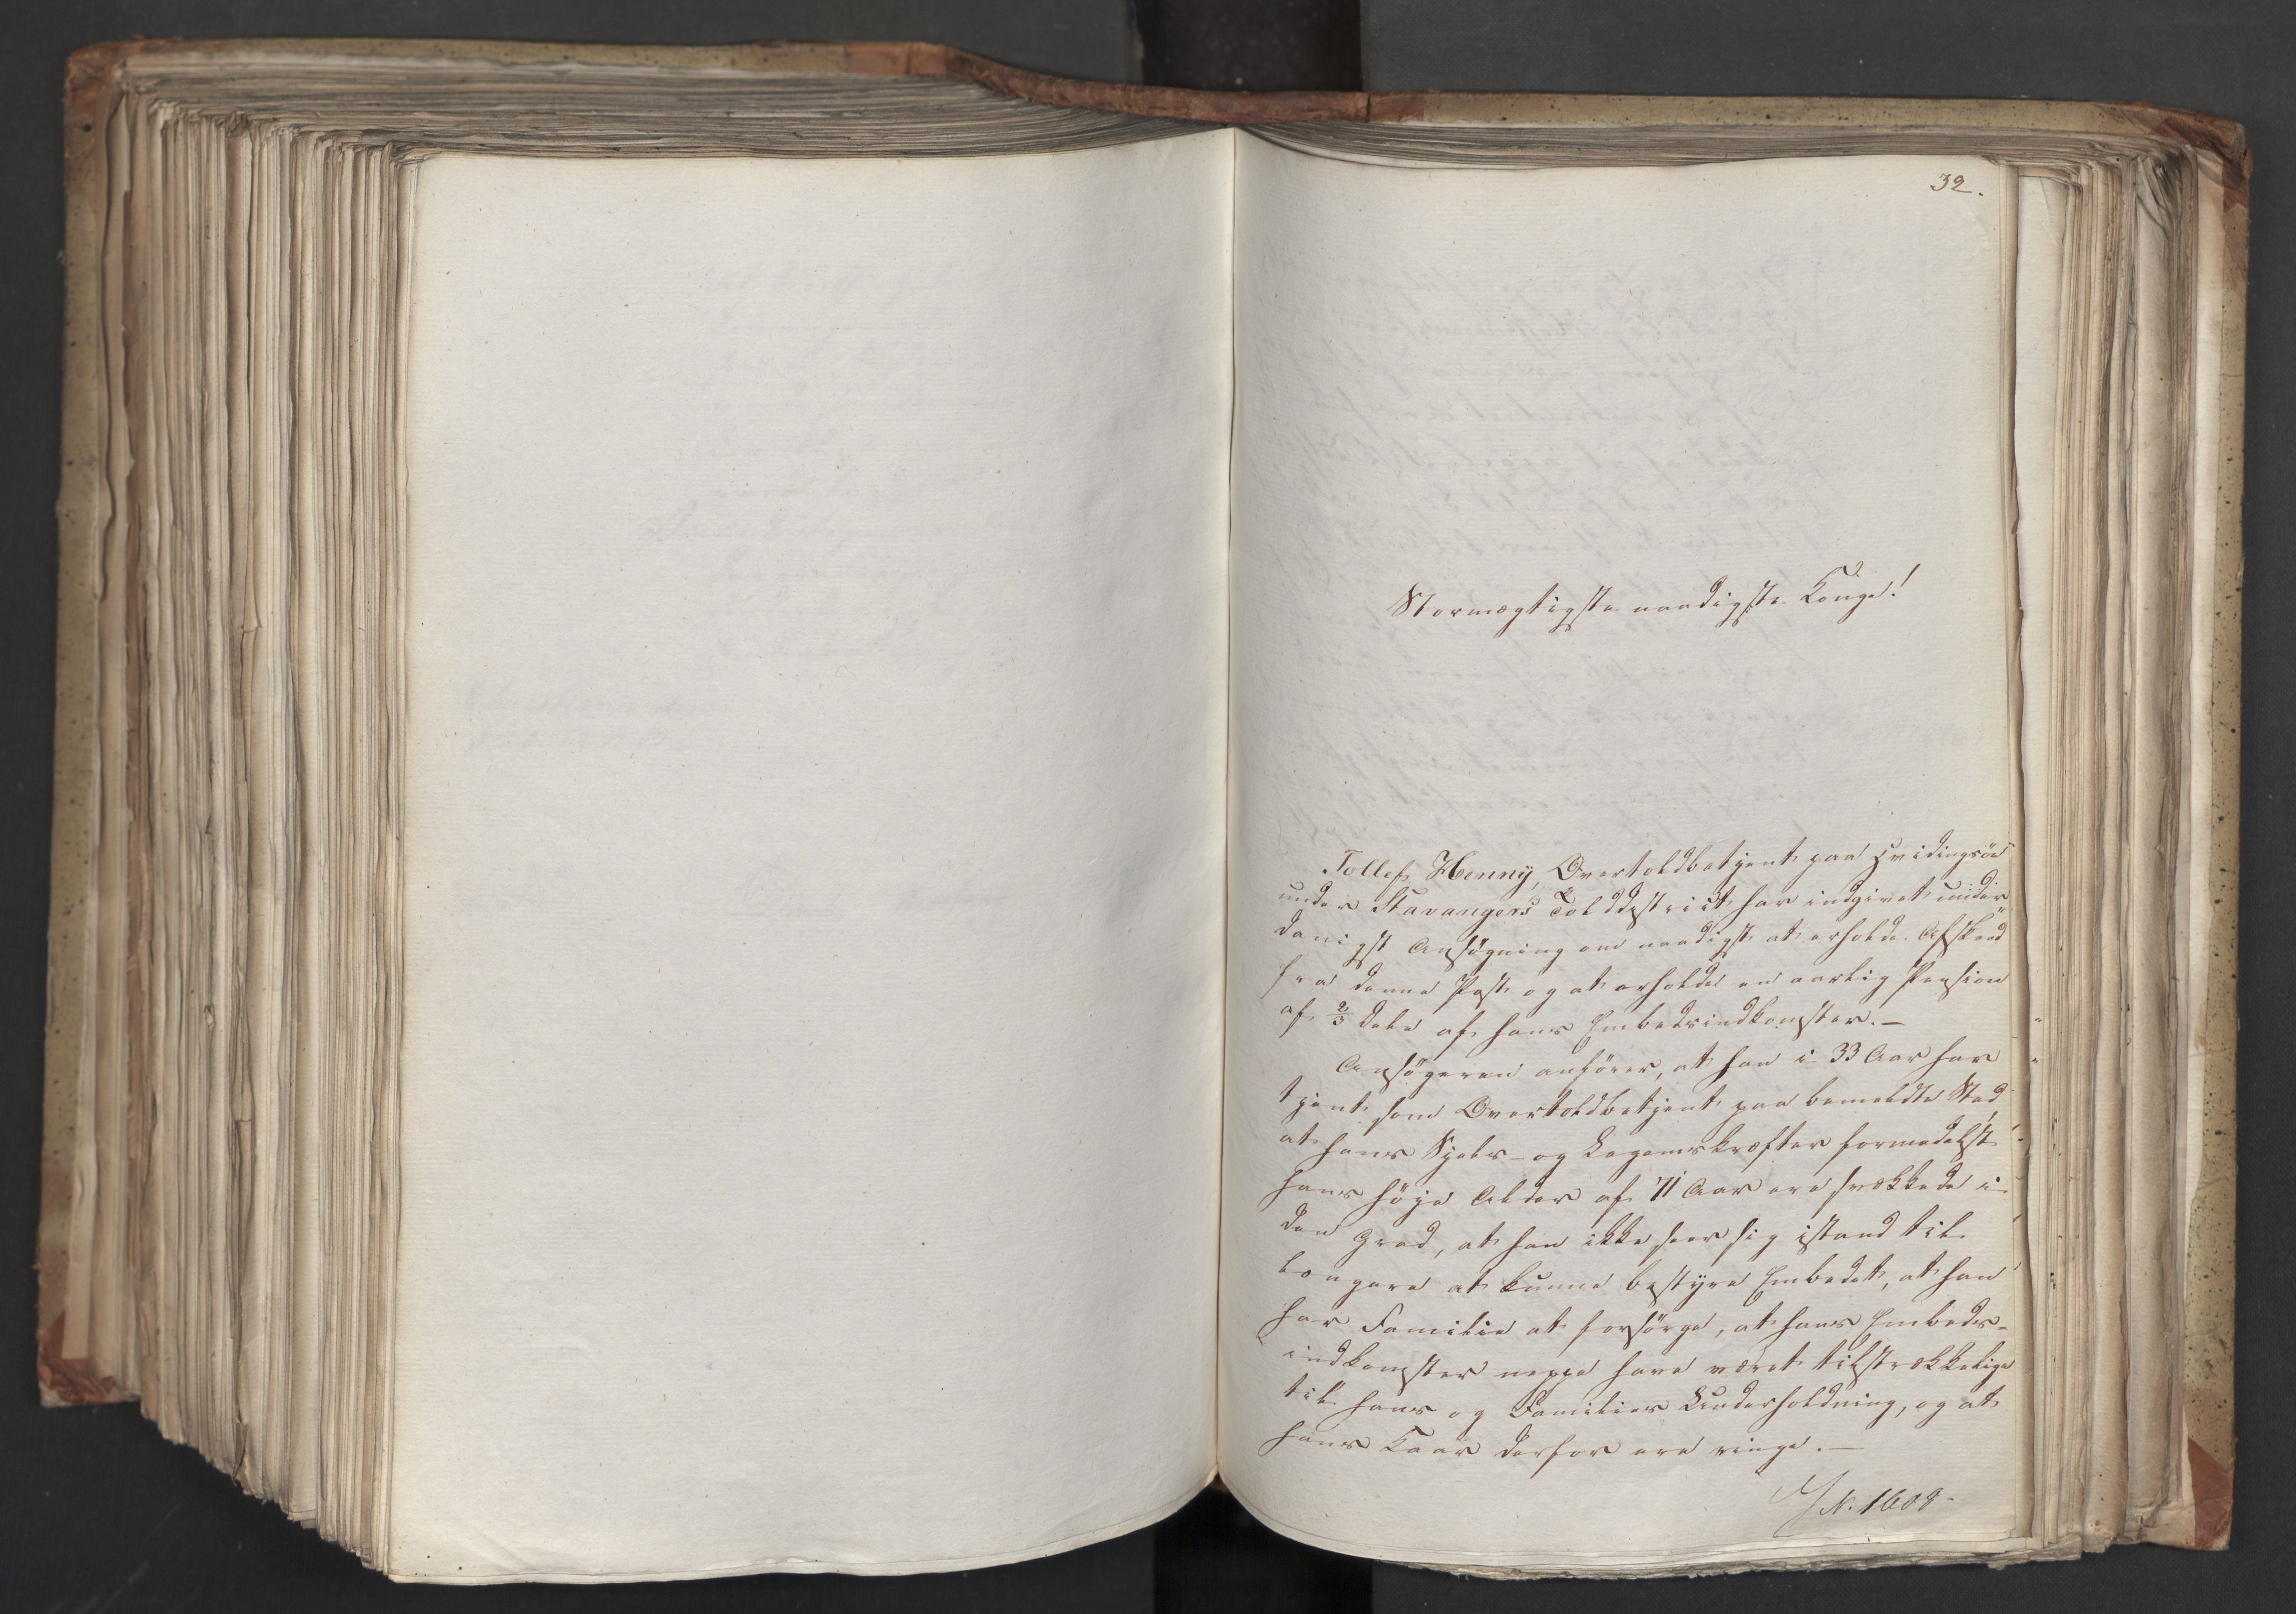 32.
Stormægtigste naadigste Konge!
Tollef Henny, Overtoldbetjent paa Hvidingsöe
under Stavangers Tolddistrict har indgivet under"
danigst Ansögning om naadigst at erholde Afskeed
fra denne Post og at erholde en aarlig Pension
af 2/3 Dele af hans Embedsindkomster. —
Ansögeren anförer, at han i 33 Aar har
tjent som Overtoldbetjent paa bemeldte Sted
at hans Sjels- og Legemskræfter formedelst
hans höje Alder af 71 Aar ere svækkede i
den Grad, at han ikke seer sig istand til
længere at kunne bestyre Embedet, at han
har Familie at forsörge, at hans Embeds-
indkomster neppe have været tilstrækkelige
til hans og Families Underholdning, og at
hans Kaar derfor ere ringe. —
N. 1608